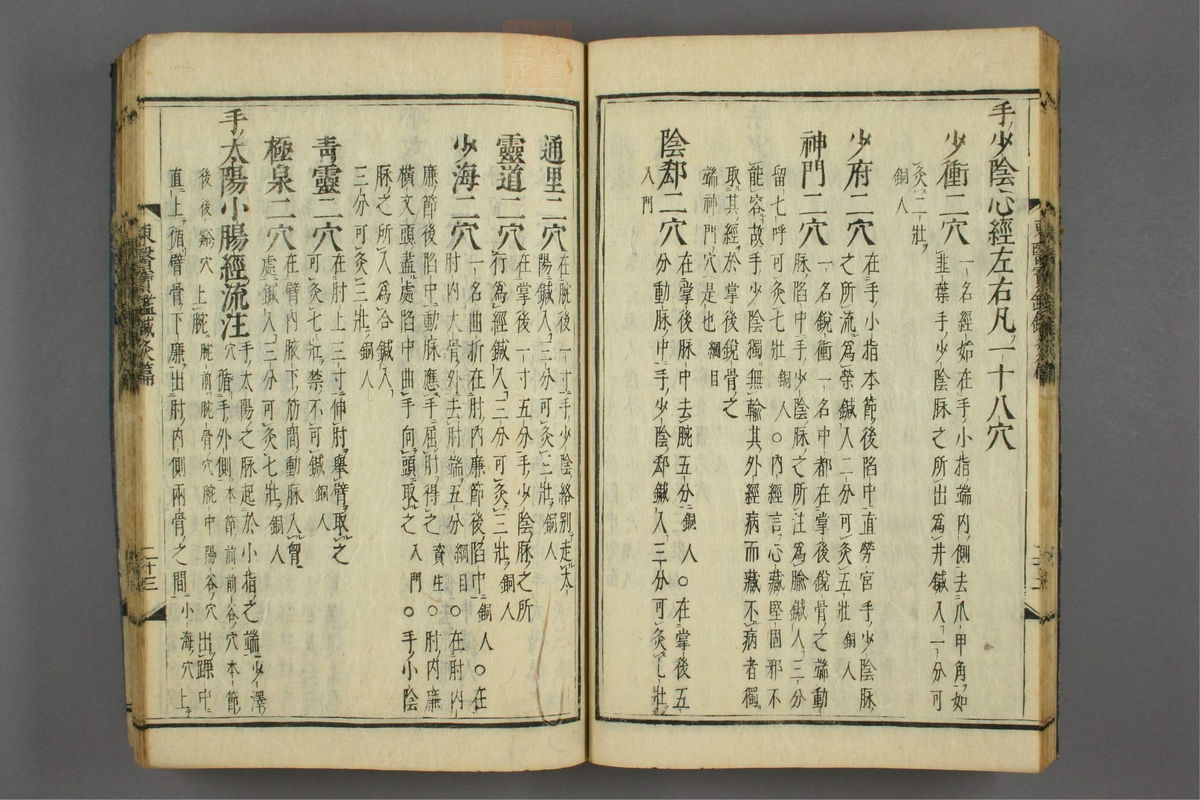 手少陰心經左右凡一十八穴
少衝二穴一名經始在手小指端內側去爪甲角如
韭葉手少陰脉之所出爲井鍼入一分可
灸二壯
銅人
少府二穴在手小指本節後陷中直勞宮手少陰脉
之所流爲滎鍼入二分可灸五壯銅人
神門二穴一名銳衝一名中都在掌後銳骨之端動
脉陷中手少陰脉之所注爲腧鍼入三分
留七呼可灸七壯銅人○內經言心藏堅固邪不
能容故手少陰獨無輸其外經病而藏不病者獨
取其經於掌後銳骨之
端神門穴是也綱目
陰郄二穴在掌後脉中去腕五分銅人○在掌後五
分動脉中手少陰郄鍼入三分可灸七壯
入門
通里二穴在腕後一寸手少陰絡別走太
陽鍼入三分可灸三壯銅人
靈道二穴在掌後一寸五分手少陰脉之所
行爲經鍼入三分可灸三壯銅人
少海二穴一名曲折在肘內廉節後陷中銅人○在
肘內大骨外去肘端五分綱目○在肘內
廉節後陷中動脉應手屈肘得之資生○肘內廉
橫文頭盡處陷中曲手向頭取之入門○手少陰
脉之所入爲合鍼入
三分可灸三壯銅人
靑靈二穴在肘上三寸伸肘擧臂取之
可灸七壯禁不可鍼銅人
極泉二穴在臂內腋下筋間動脉入胷
處鍼入三分可灸七壯銅人
手太陽小腸經流注
手太陽之脉起於小指之端少澤
穴循手外側本節前前谷穴本節
後後谿穴上腕腕前腕骨穴腕中陽谷穴出踝中
直上循臂骨下廉出肘內側兩骨之間小海穴上
東醫寶鑑鍼灸篇
二十三